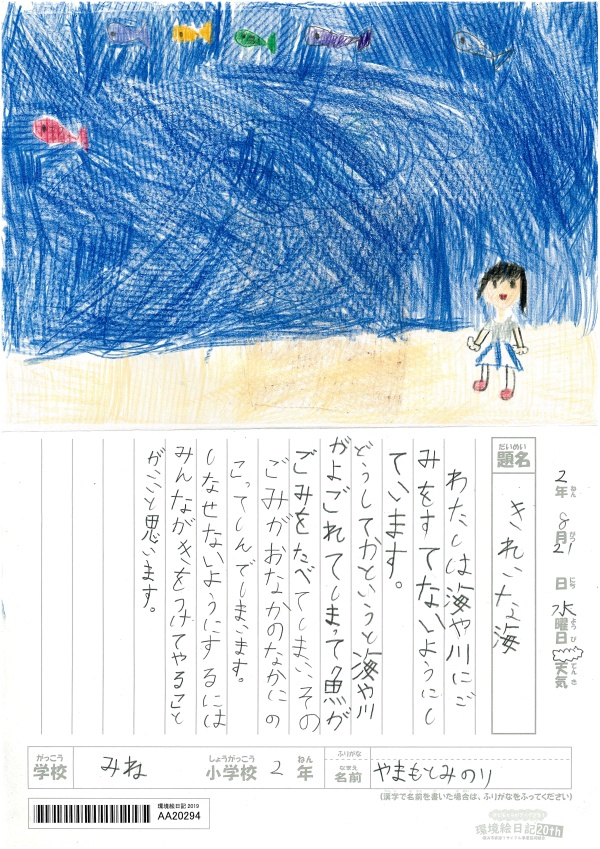 だいめい
題名
きれいな海
2年 ねん
8月 がつ
21日 にち
水曜日 ようび
天気 てんき
わたしは海や川にご
みをすてないようにし
ています。
どうしてかというと海や川
がよごれてしまって魚が
ごみをたべてしまい、その
ごみがおなかのなかにの
こってしんでしまいます。
しなせないようにするには
みんながきをつけてやること
がいいと思います。
がっこう
学校
みね
しょうがっこう
小学校
2
ねん
年
ふりがな
なまえ
名前
やまもとみのり
(漢字で名前を書いた場合は、ふりがなをふってください)
環境絵日記 2019
AA20294
環境絵日記20th